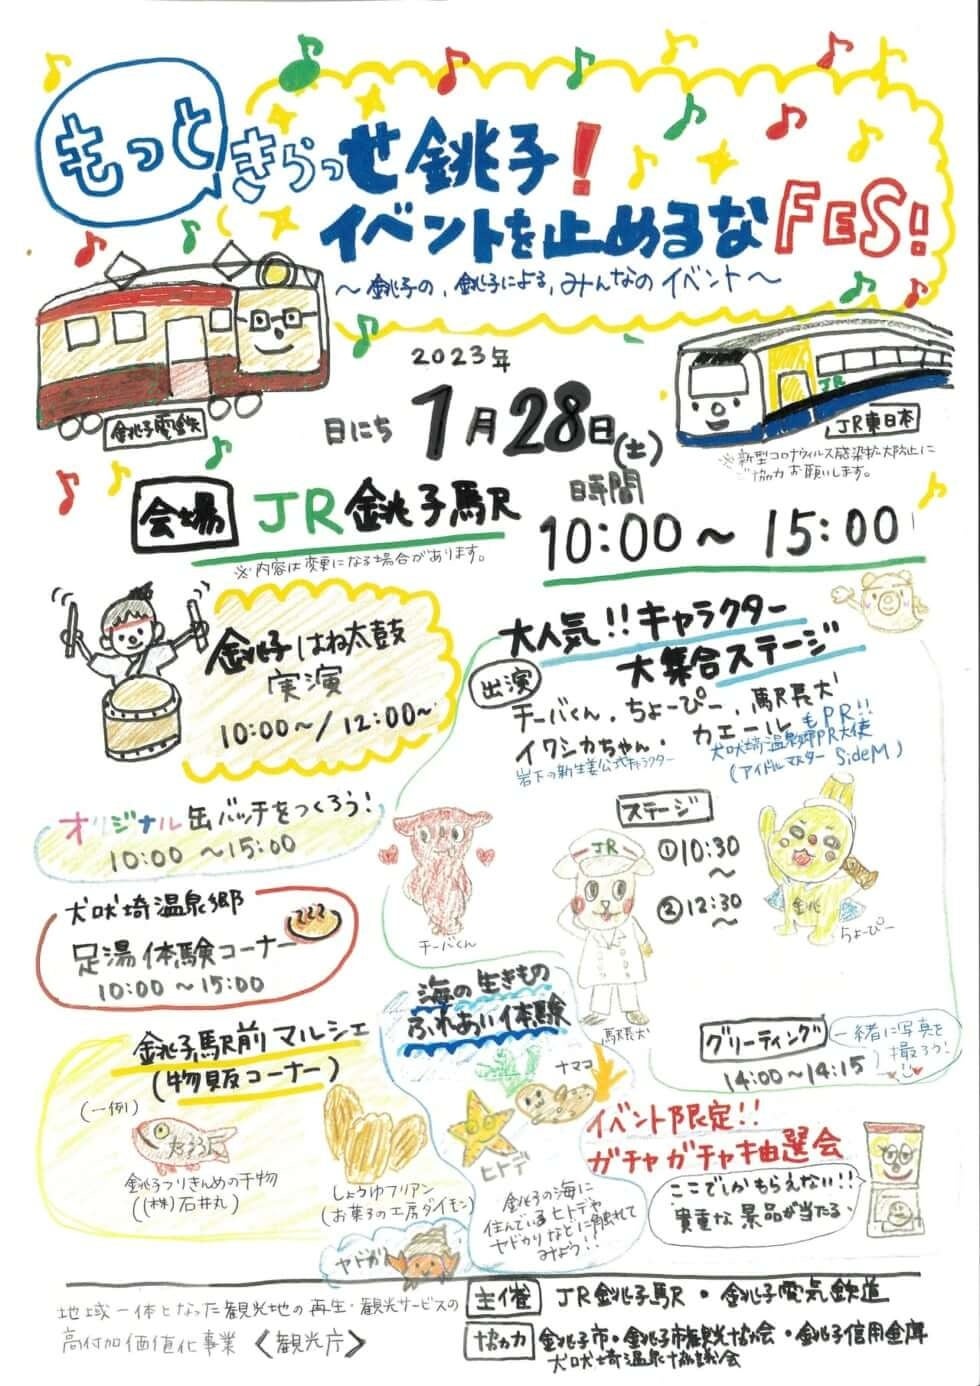 もっと
きらっせ銚子！
イベントを止めるなFES!
～銚子の、銚子による、みんなのイベント～
2023年
日にち 1月28日(土)
銚子電鉄
JR
JR東日本
※新型コロナウィルス感染拡大防止に
ご協力お願いします。
会場 JR銚子駅
※内容は変更になる場合があります。
時間
10:00～15:00
銚子はね太鼓
実演
10:00～/12:00～
大人気!!キャラクター
大集合ステージ
出演
チーバくん、ちょーぴー、駅長犬
イワシカちゃん・カエールもPR!!
岩下の新生姜公式キャラクター
犬吠埼温泉郷PR大使
(アイドルマスター SideM)
ステージ
①10:30～
②12:30～
JR
銚
チーバくん
駅長犬
ちょーぴー
オリジナル缶バッチをつくろう!
10:00～15:00
犬吠埼温泉郷
足湯体験コーナー
10:00～15:00
グリーティング
14:00～14:15
一緒に写真を
撮ろう!
銚子駅前マルシェ
(物販コーナー)
(一例)
銚子つりきんめの干物
((株)石井丸)
しょうゆフリアン
(お菓子の工房ダイモン)
海の生きもの
ふれあい体験
ナマコ
ヒトデ
銚子の海に
住んでいるヒトデや
ヤドカリなどに触れて
みよう!!
ヤドカリ
イベント限定!!
ガチャガチャ抽選会
ここでしかもらえない!!
貴重な景品が当たる、
地域一体となった観光地の再生・観光サービスの
高付加価値化事業《観光庁》
主催 JR銚子駅・銚子電気鉄道
協力 銚子市・銚子市観光協会・銚子信用金庫
犬吠埼温泉協議会